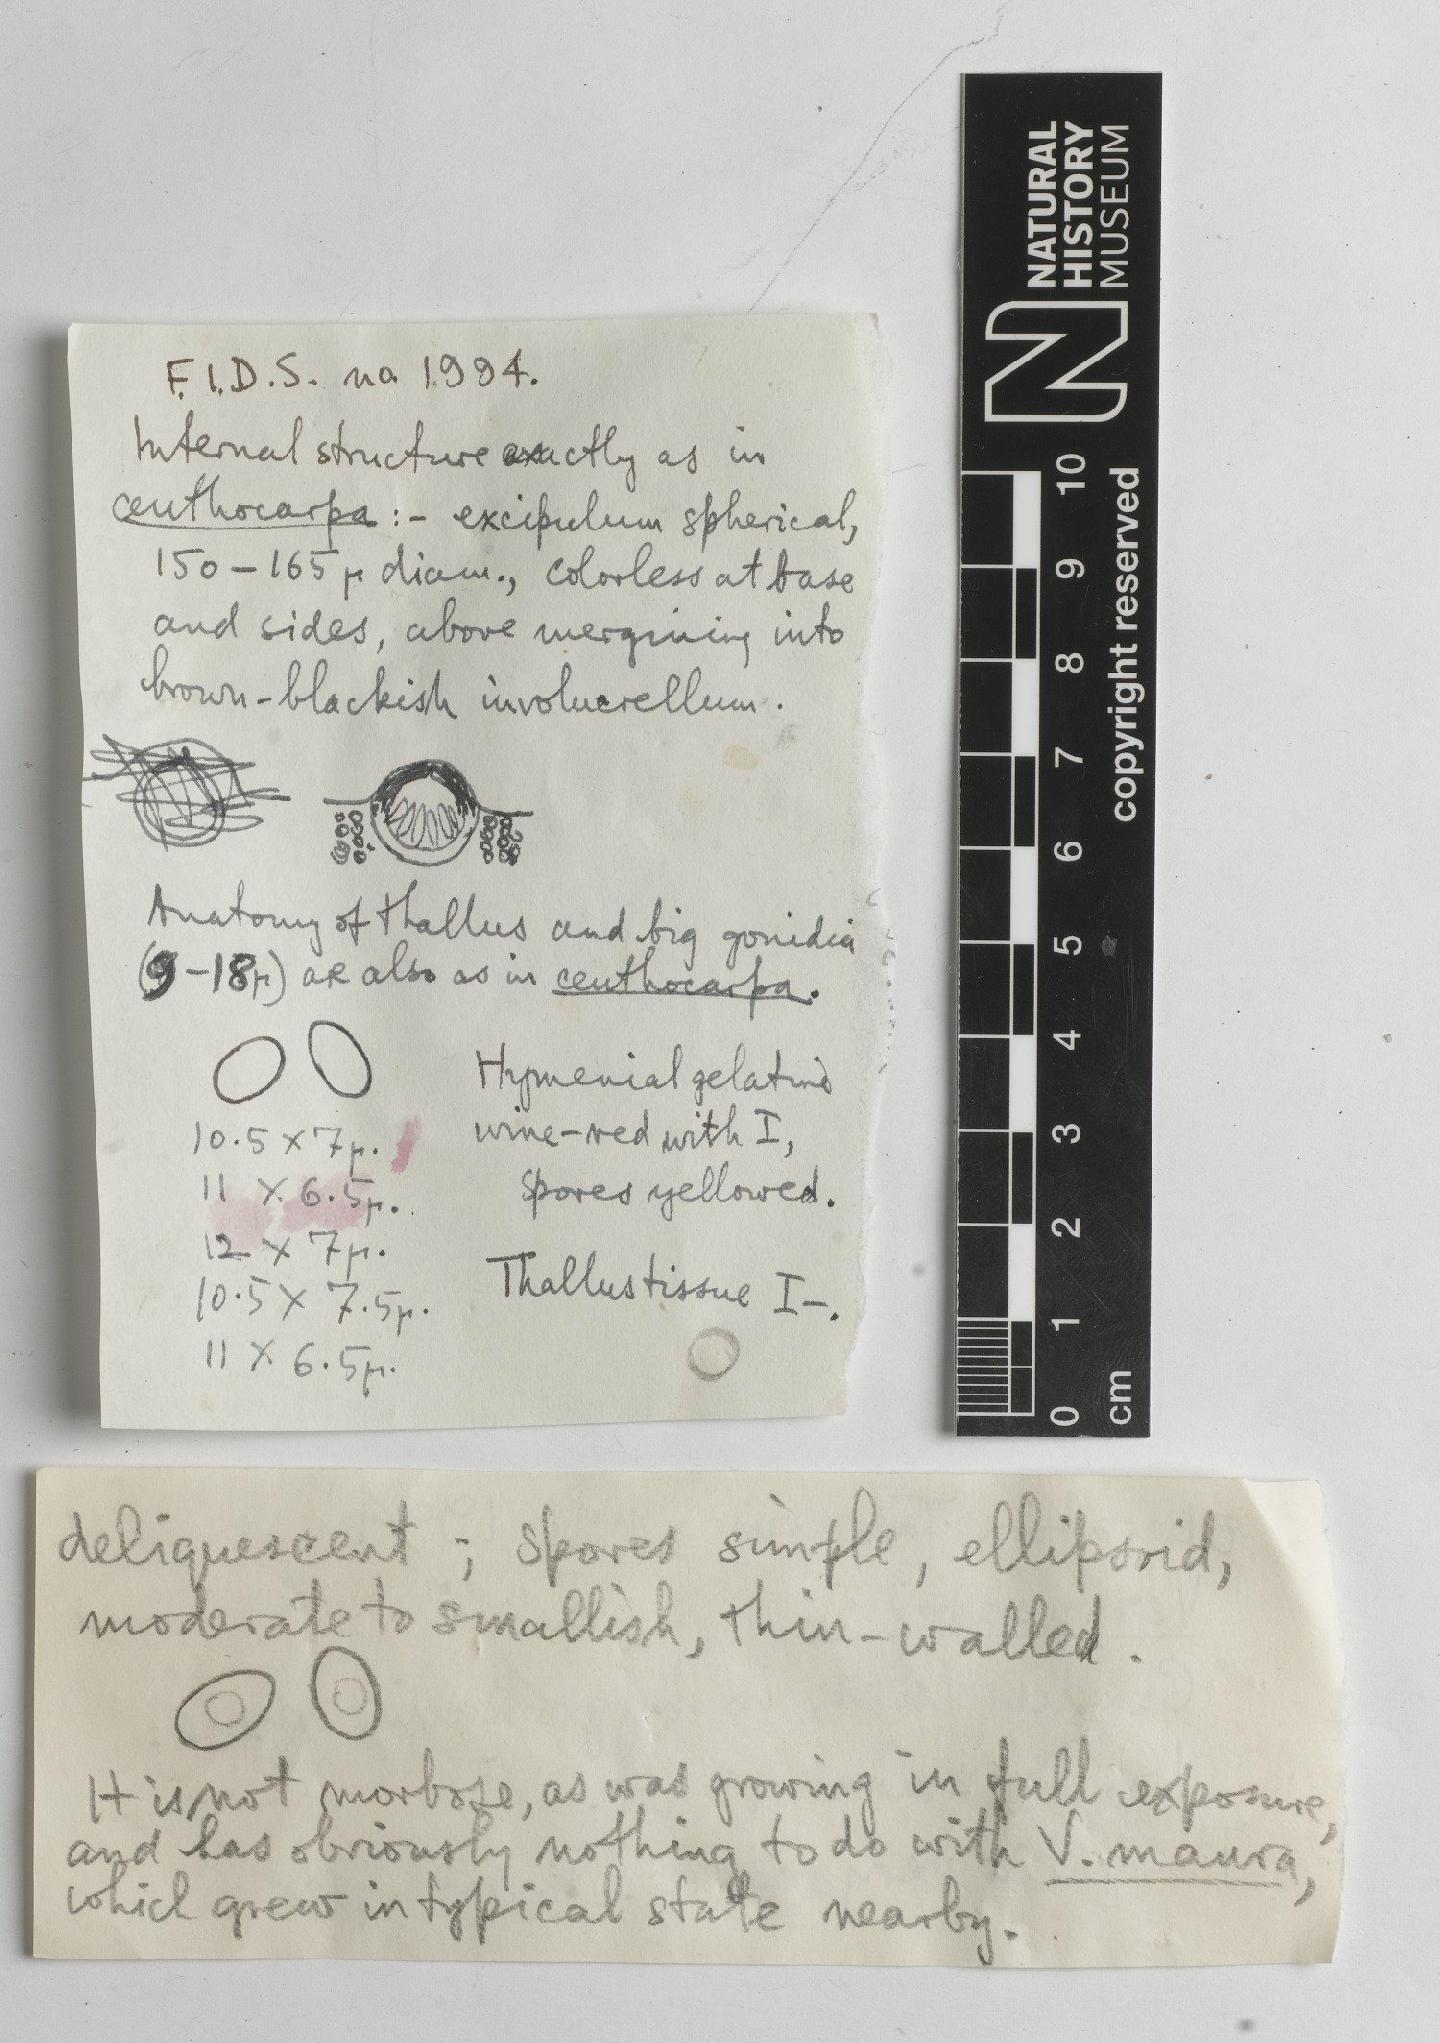 F.I.D.S. no 1994.
Internal structure exactly as in
ceuthocarpa :- excipulum spherical,
150-165 µ diam., colorless at base
and sides, above mergining into
brown-blackish involucrellum.
Anatomy of thallus and big gonidia
(9-18µ) are also as in ceuthocarpa.
10.5 x 7µ.
11 x 6.5µ.
12 x 7µ.
10.5 x 7.5µ.
11 x 6.5µ.
Hymenial gelatine
wine-red with I,
spores yellowed.
Thallus tissue I-.
deliquescent ; spores simple, ellipsoid,
moderate to smallish, thin-walled.
It is not morbose, as was growing in full exposure,
and has obviously nothing to do with V. maura,
which grew in typical state nearby.
NATURAL
HISTORY
MUSEUM
copyright reserved
10
9
8
7
6
5
4
3
2
1
0
cm